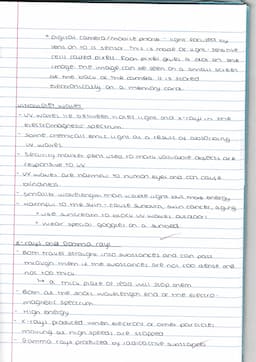 * Digital camera/mobile phone - light focused by
lens on to a sensor. This is made of light-sensitive
cells called pixels. Each pixel gives a dot on the
image. The image can be seen on a small screen
at the back of the camera. It is stored
electronically on a memory card.
Ultraviolet waves
- UV waves lie between violet light and x-rays in the
electromagnetic spectrum
- Some chemicals emit light as a result of absorbing
UV waves
- Security marker pens used to mark valuable objects are
responsive to UV
- UV waves are harmful to human eyes and can cause
blindness
- Smaller wavelength than visible light but more energy
- Harmful to the skin - cause sunburn, skin cancer, aging
* Use sunscreen to block UV waves outdoors
* Wear special goggles on a sunbed
X-rays and Gamma rays
- Both travel straight into substances and can pass
through them if the substances are not too dense and
not too thick
↳ a thick plate of lead will stop them
- Both at the short wavelength end of the electro-
magnetic spectrum
- High energy
- X-rays produced when electrons or other particles
moving at high speeds are stopped
- Gamma rays produced by radioactive substances